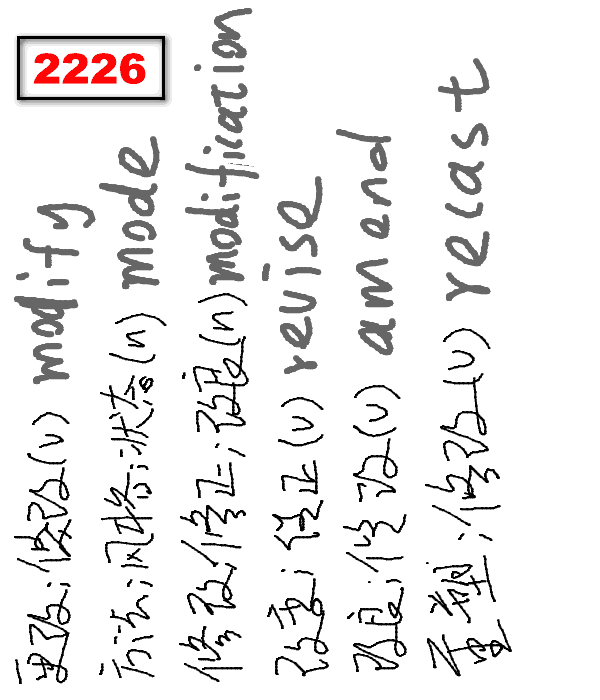 2226
更改;修改(v) modify
方法;风格;状态(n) mode
修改;修正;改良(n) modification
改变;修正(v) revise
改良;修改(v) amend
重塑;修改(v) recast